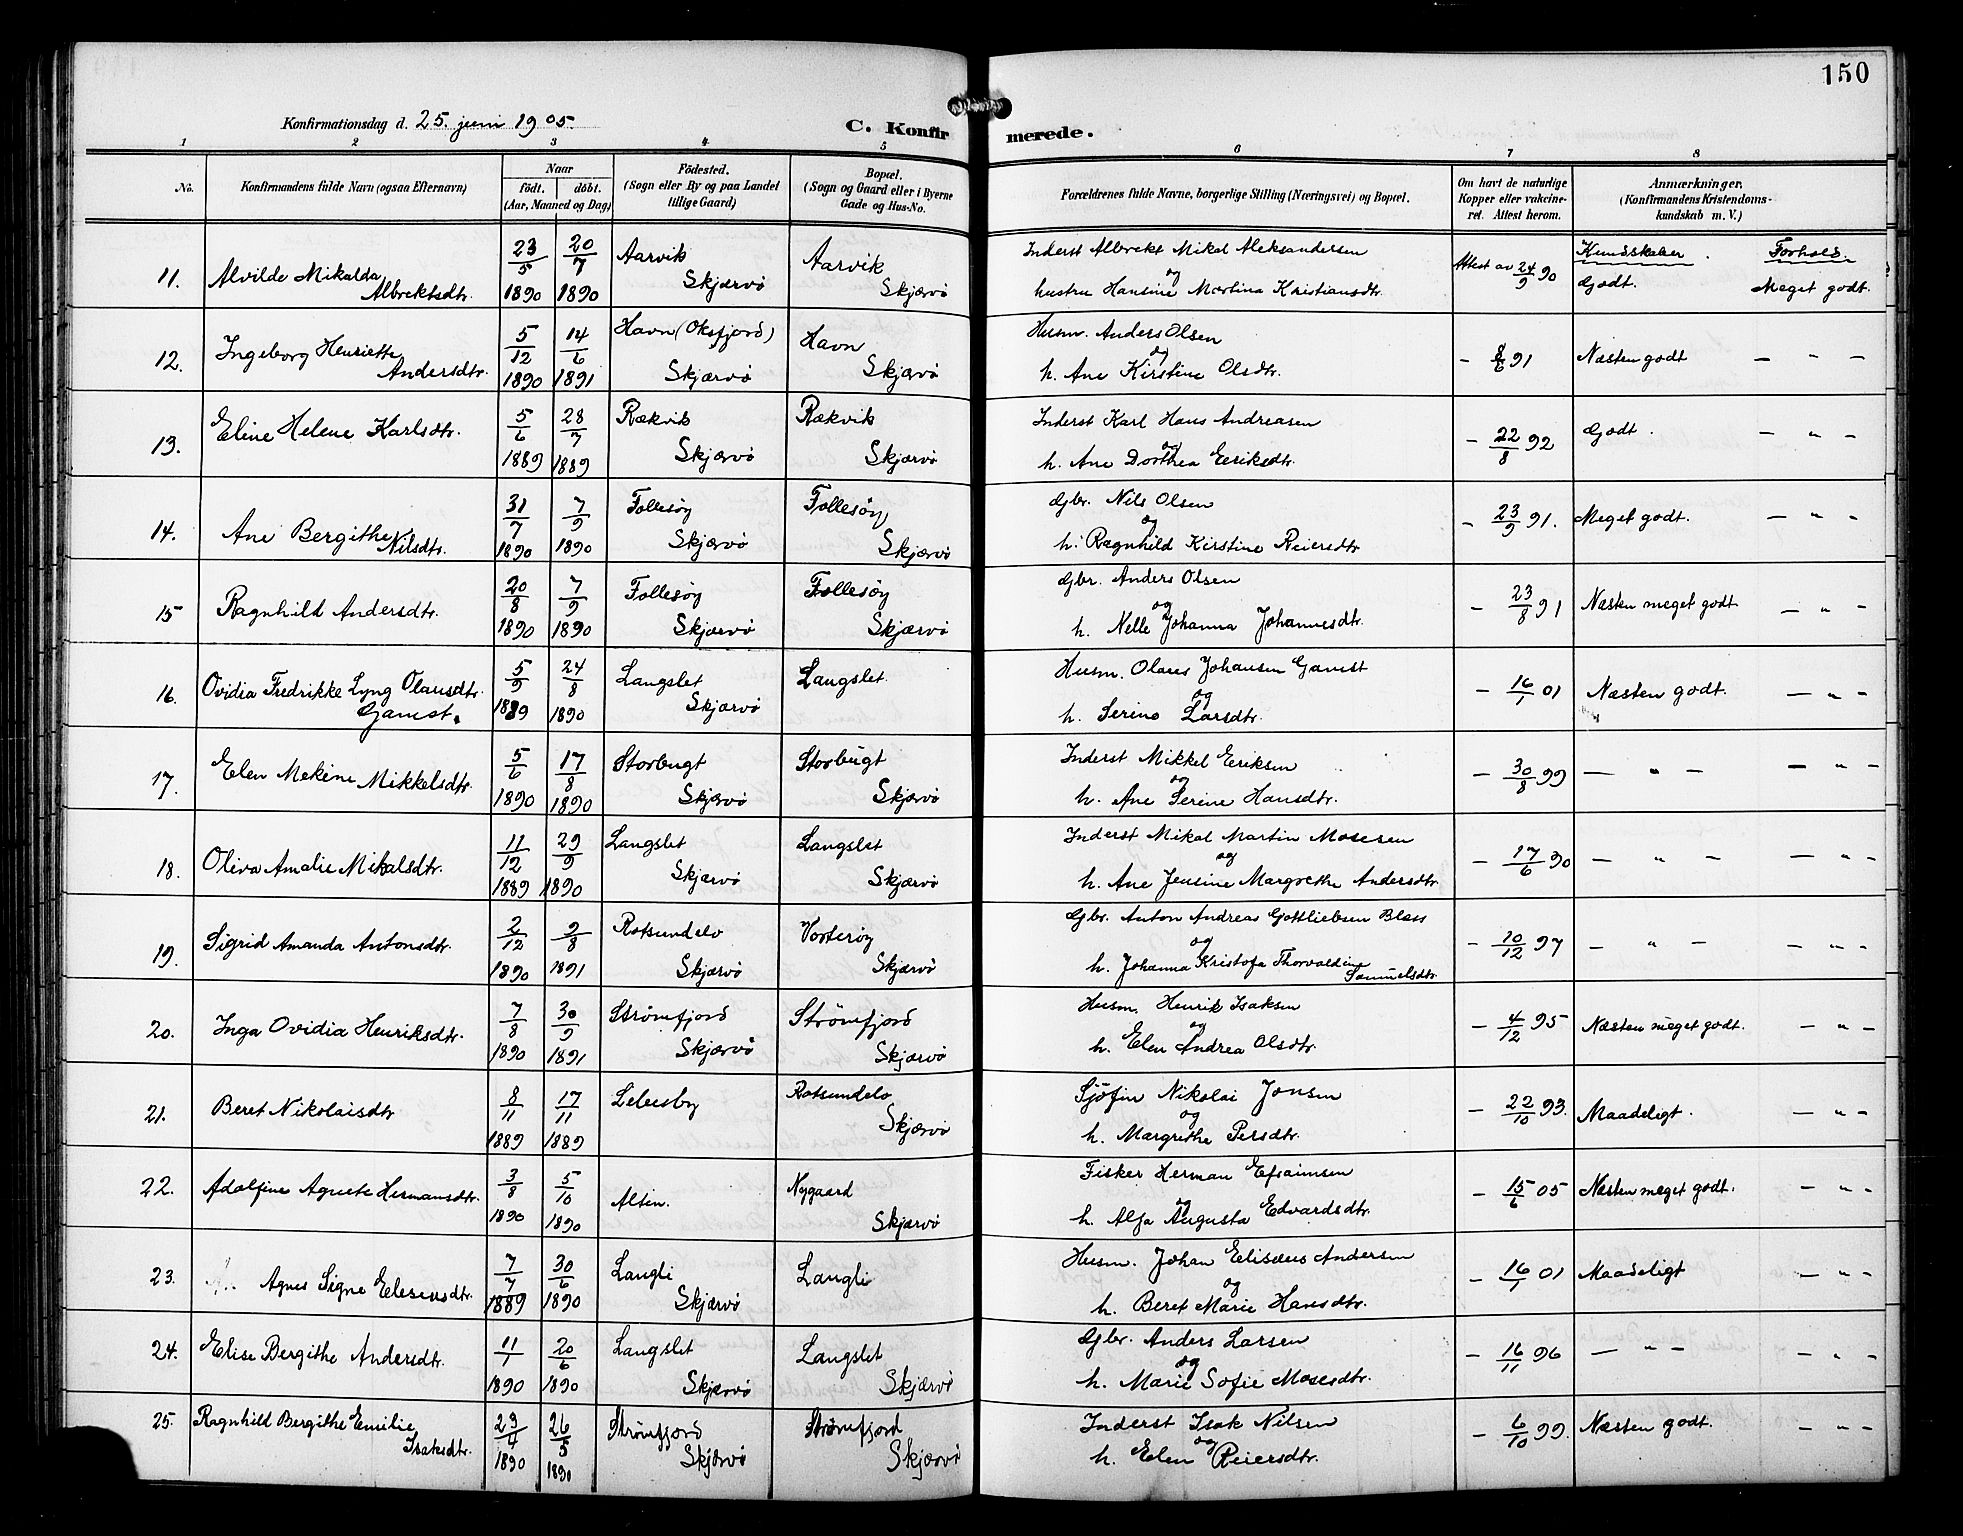 150
Konfirmationsdag d. 25. juni 1905.
C. Konfirmerede.
1 2 3 4 5 6 7 8
No. Konfirmandens fulde Navn (ogsaa Efternavn) Naar födt. döbt. (Aar, Maaned og Dag) Födested. (Sogn eller By og paa Landet tillige Gaard) Bopæl. (Sogn og Gaard eller i Byerne Gade og Hus-No. Forældrenes fulde Navne, borgerlige Stilling (Næringsvei) og Bopæl. Om havt de naturlige Kopper eller vakcineret. Attest herom. Anmærkninger. (Konfirmandens Kristendomskundskab m. V.)
Kundskaber. Forhold.
11. Alvilde Mikalda Albrektsdtr. 23/5 1890 20/7 1890 Aarvik Skjærvö Aarvik Skjærvö Inderst Albrekt Mikal Aleksandersen og hustru Hansine Martina Kristiansdtr. Attest av 24/9 90 Godt. Meget godt.
12. Ingeborg Henriette Andersdtr. 5/12 1890 14/6 1891 Havn (Oksfjord) Skjærvö Havn Skjærvö Husm. Anders Olsen og h. Ane Kirstine Olsdtr. - 8/6 91 Næsten godt - " -
13. Eline Helene Karlsdtr. 5/6 1889 28/7 1889 Rækvik Skjærvö Rækvik Skjærvö Inderst Karl Hans Andreasen og h. Ane Dorthea Eriksdtr. - 22/8 92 Godt. - " -
14. Ane Bergithe Nilsdtr. 31/7 1890 7/9 1890 Follesöy Skjærvö Follesöy Skjærvö Gbr. Nils Olsen og h. Ragnhild Kirstine Reiersdtr - 23/9 91. Meget godt. - " -
15 Ragnhild Andersdtr. 20/8 1890 7/9 1890 Follesöy Skjærvö Follesöy Skjærvö Gbr. Anders Olsen og h. Nelle Johanna Johannesdtr. - 23/8 91 Næsten meget godt - " -
16. Ovidia Fredrikke Lyng Olausdtr. Gamst. 5/9 1889 24/8 1890 Langslet Skjærvö Langslet. Husm. Olaus Johansen Gamst og h. Serine Larsdtr. - 16/1 01 Næsten godt. - " -
17. Elen Mekine Mikkelsdtr. 5/6 1890 17/8 1890 Storbugt Skjærvö Storbugt Skjærvö Inderst Mikkel Eriksen og h. Ane Serine Hansdtr. - 30/8 99 - " - - " -
18. Oliva Amalie Mikalsdtr. 11/12 1889 29/9 1890 Langslet Skjærvö Langslet Skjærvö Inderst Mikal Martin Mosesen og h. Ane Jensine Margrethe Andersdtr - 17/6 90 - " - - " -
19. Sigrid Amanda Antonsdtr. 2/12 1890 9/8 1891 Rotsundelv Skjærvö Vorteröy Skjærvö Gbr. Anton Andreas Gottliebsen Blæss og h. Johanna Kristofa Thorvaldine Samuelsdtr. - 10/12 97 - " - - " -
20. Inga Ovidia Henriksdtr. 7/8 1890 30/9 1891 Strömfjord Skjærvö Strömfjord Skjærvö Husm. Henrik Isaksen og h. Elen Andrea Olsdtr. - 4/12 95 Næsten meget godt. - " -
21. Beret Nikolaisdtr 8/11 1889 17/11 1889 Lebesby Rotsundelv Skjærvö Sjöfin Nikolai Jonsen og h. Margrethe Persdtr. - 22/10 93. Maadeligt. - " -
22. Adolfine Agnete Hermansdtr. 3/8 1890 5/10 1890 Alten. Nygaard Skjærvö Fisker Herman Efraimsen og h. Alfa Augusta Edvardsdtr. - 15/6 05 Næsten meget godt. - " -
23. Agnes Signe Elesensdtr. 7/7 1889 30/6 1890 Langli Skjærvö Langli Husm. Johan Elisæus Andersen og h. Beret Marie Hansdtr. - 16/1 01 Maadeligt - " -
24. Elise Bergithe Andersdtr. 11/1 1890 20/6 1890 Langslet Skjærvö Langslet Skjærvö Gbr. Anders Larsen og h. Marie Sofie Mosesdtr. - 16/11 96 - " - - " -
25. Ragnhild Bergithe Emilie Isaksdtr. 23/4 1890 26/5 1890 Strömfjord Skjærvö Strömfjord Skjærvö Inderst Isak Nilsen og h. Elen Reiersdtr. - 6/10 99. Næsten godt. - " -